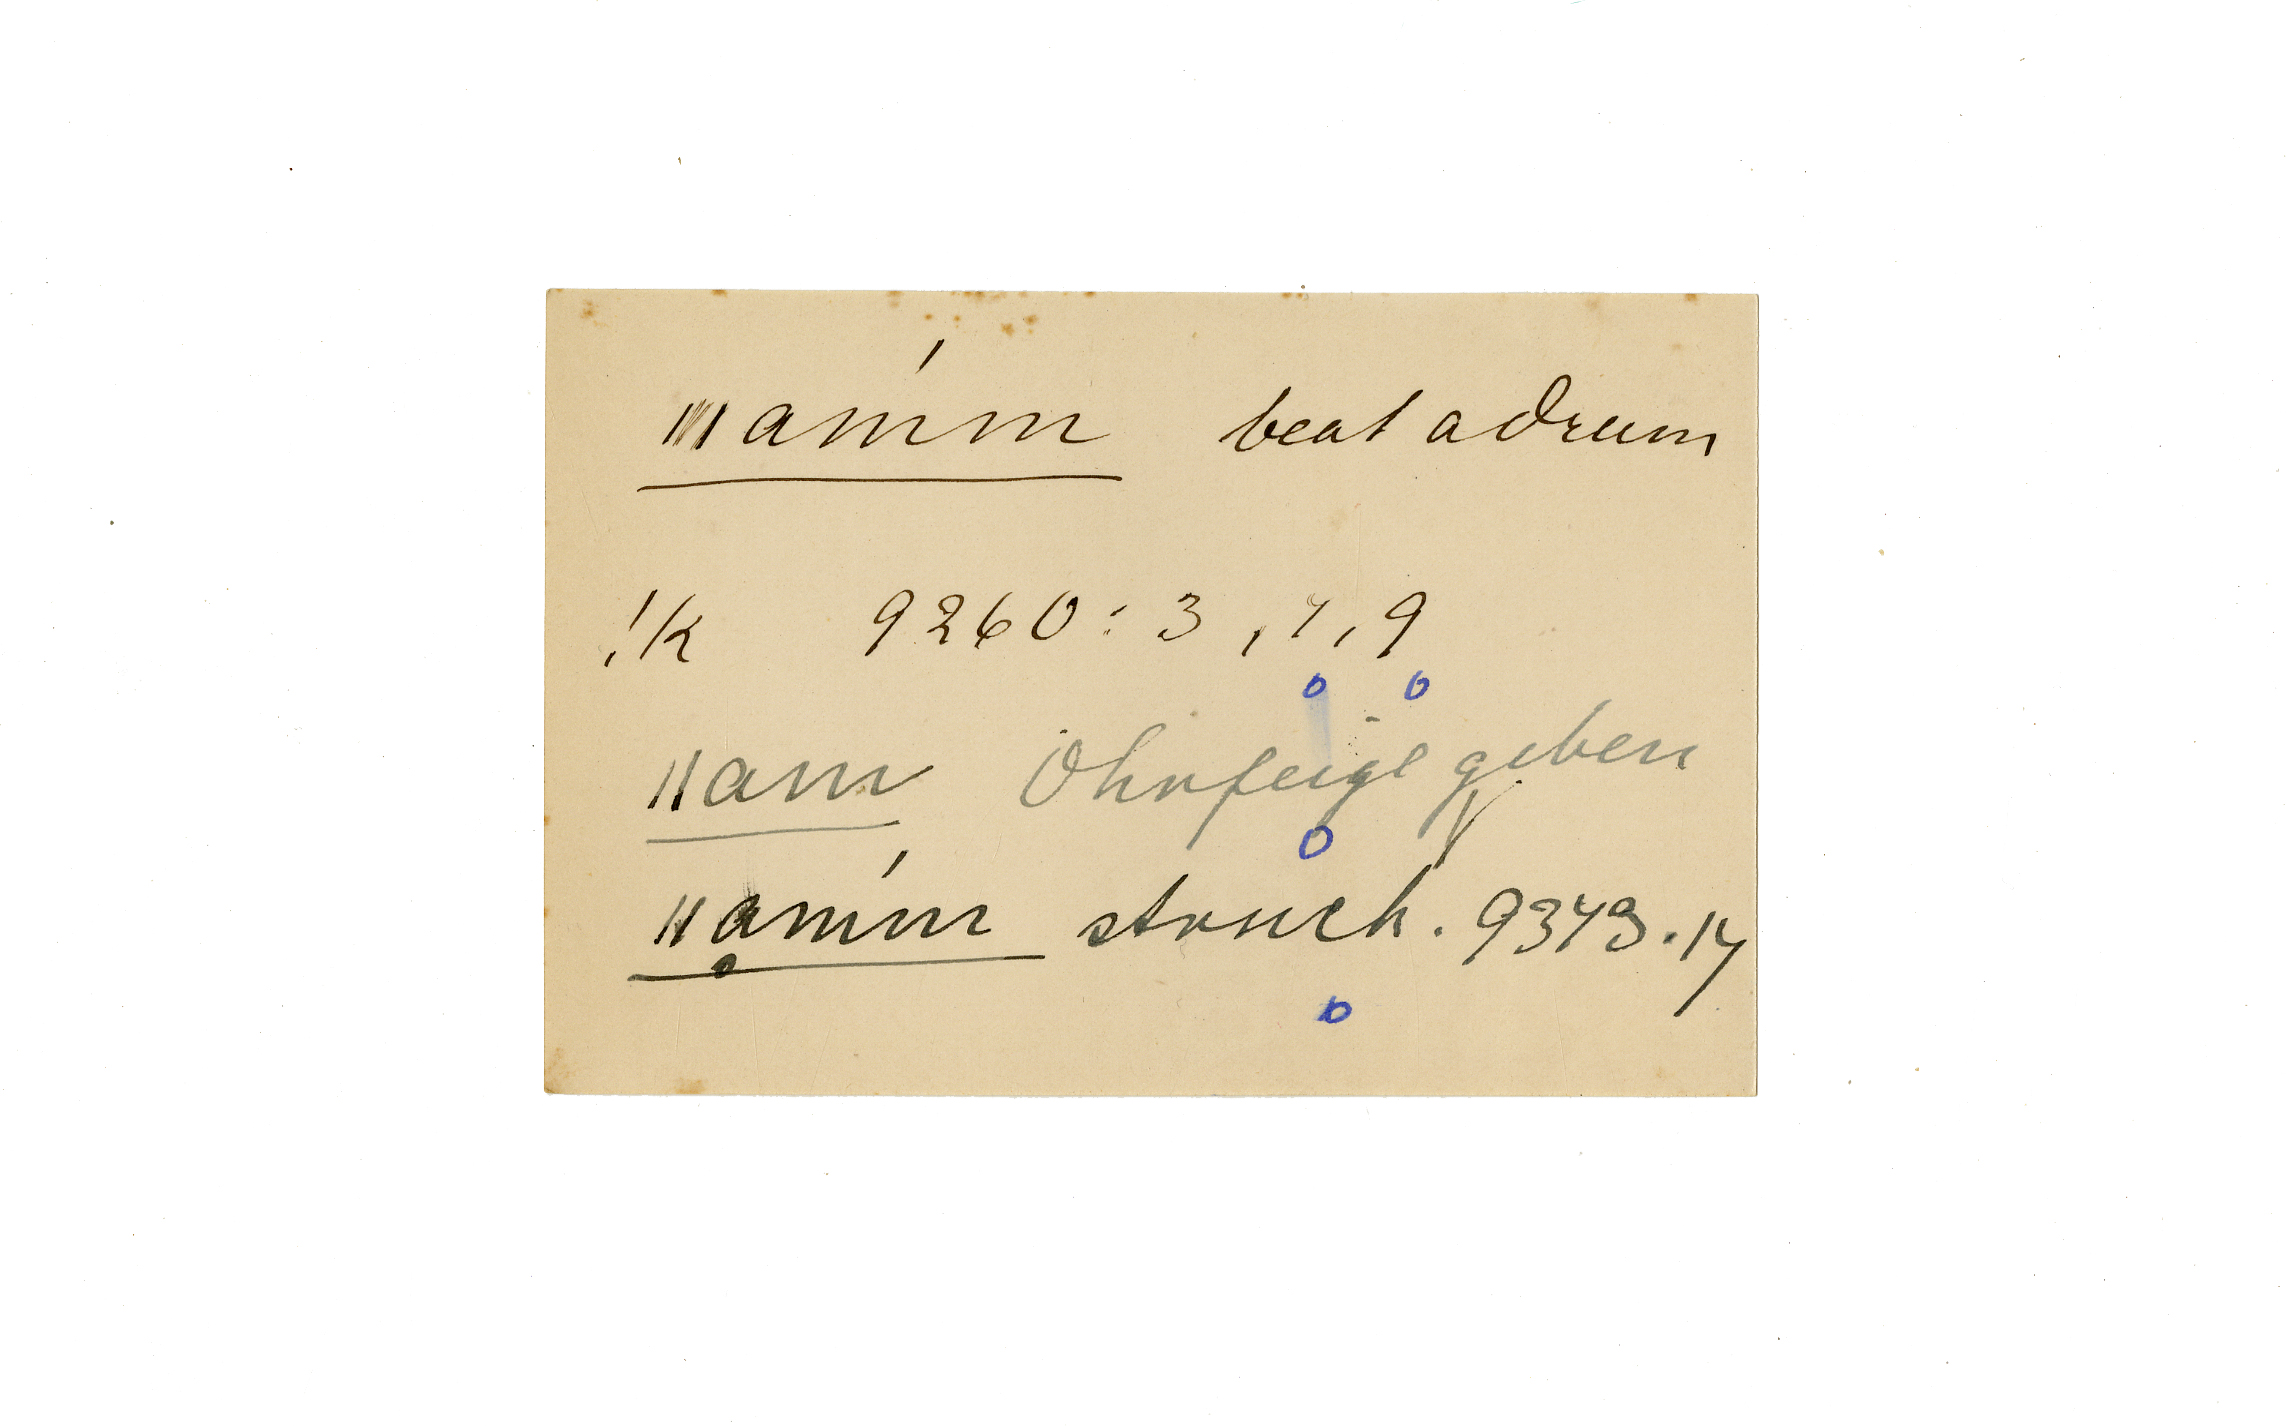 ǁamḿ beat a drum
!k 9260: 3, 7, 9
ǁam Ohrfeige geben
ǁamḿ struck. 9373.17